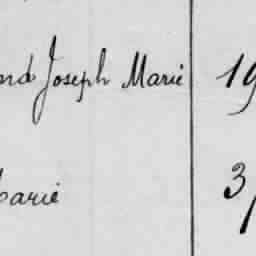 Joseph Marie 19
Marie 3